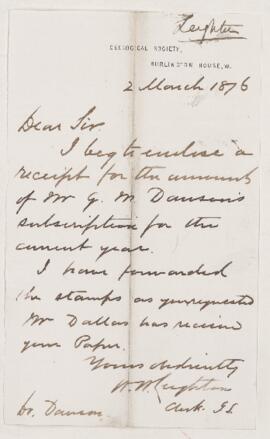 Leighton
GEOLOGICAL SOCIETY,
BURLINGTON HOUSE, W.
2 March 1876
Dear Sir.
I beg to enclose a
receipt for the amount
of Mr G. M. Dawson's
subscription for the
current year.
I have forwarded
the stamps as you requested
Mr Dallas has receive
your Paper.
Yours obediently
W W Leighton
Clerk G S
Dr. Dawson